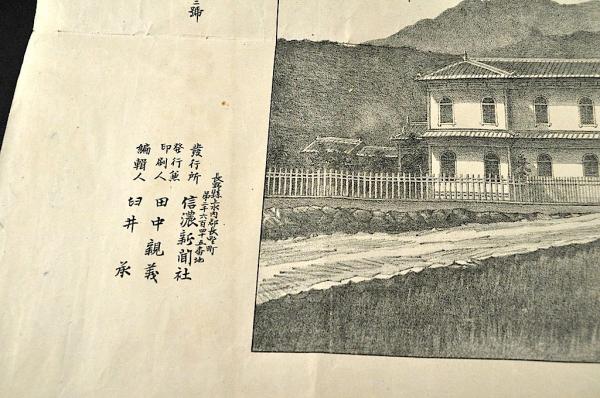 號
發行所
長野縣上水內郡長野町
第三千六百四十五番地
信濃新聞社
發行兼
印刷人
田中親義
編輯人
臼井承